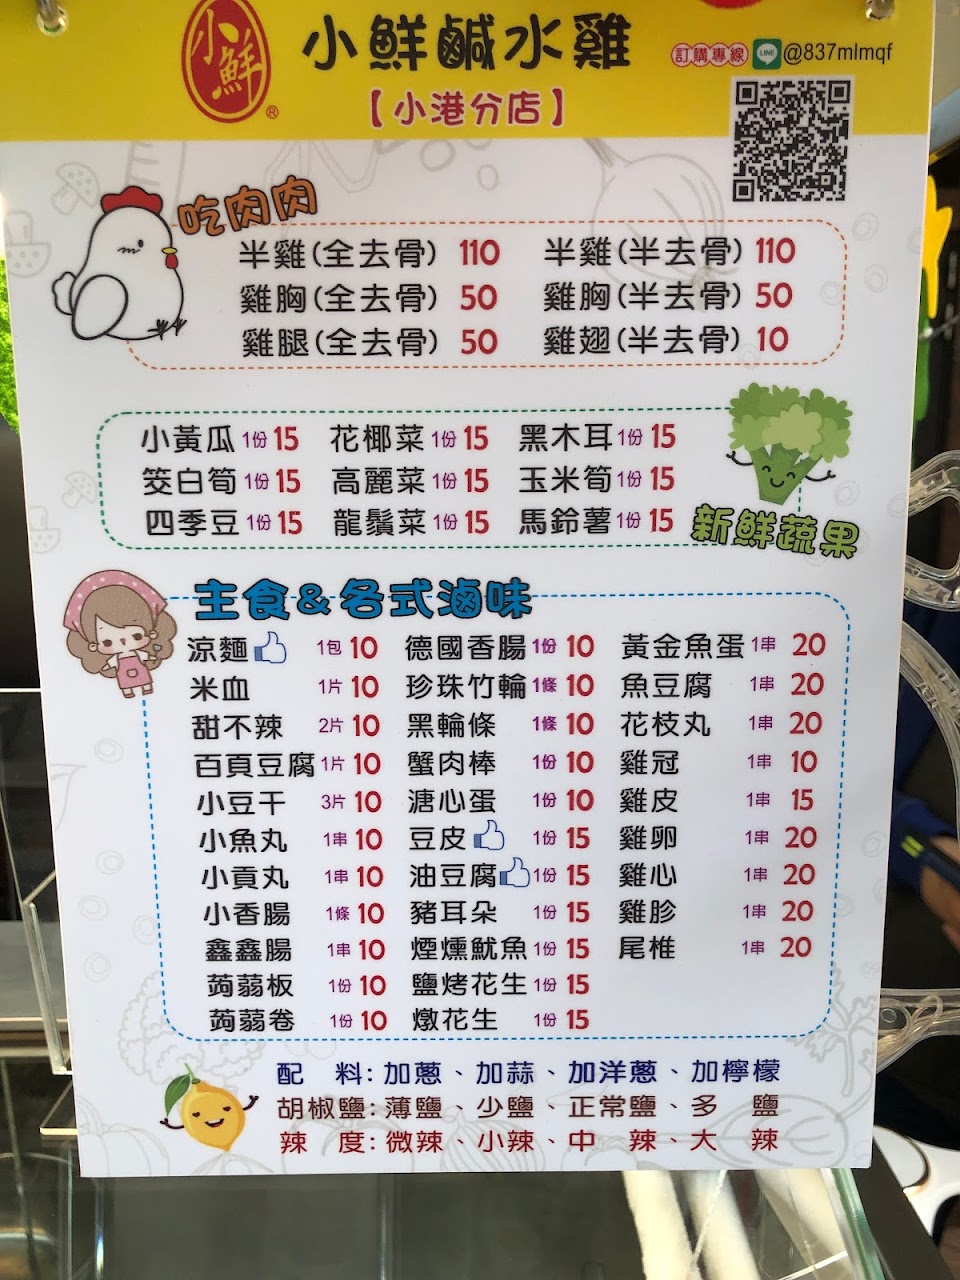 小鮮
®
小鮮鹹水雞
訂購專線 LINE @837mlmqf
【小港分店】
吃肉肉
半雞(全去骨) 110 半雞(半去骨) 110
雞胸(全去骨) 50 雞胸(半去骨) 50
雞腿(全去骨) 50 雞翅(半去骨) 10
小黃瓜 1份 15 花椰菜 1份 15 黑木耳 1份 15
筊白筍 1份 15 高麗菜 1份 15 玉米筍 1份 15
四季豆 1份 15 龍鬚菜 1份 15 馬鈴薯 1份 15
新鮮蔬果
主食&各式滷味
涼麵 1包 10 德國香腸 1份 10 黃金魚蛋 1串 20
米血 1片 10 珍珠竹輪 1條 10 魚豆腐 1串 20
甜不辣 2片 10 黑輪條 1條 10 花枝丸 1串 20
百頁豆腐 1片 10 蟹肉棒 1份 10 雞冠 1串 10
小豆干 3片 10 溏心蛋 1份 10 雞皮 1串 15
小魚丸 1串 10 豆皮 1份 15 雞卵 1串 20
小貢丸 1串 10 油豆腐 1份 15 雞心 1串 20
小香腸 1條 10 豬耳朵 1份 15 雞胗 1串 20
鑫鑫腸 1串 10 煙燻魷魚 1份 15 尾椎 1串 20
蒟蒻板 1份 10 鹽烤花生 1份 15
蒟蒻卷 1份 10 燉花生 1份 15
配 料: 加蔥、加蒜、加洋蔥、加檸檬
胡椒鹽: 薄鹽、少鹽、正常鹽、多 鹽
辣 度: 微辣、小辣、中 辣、大 辣